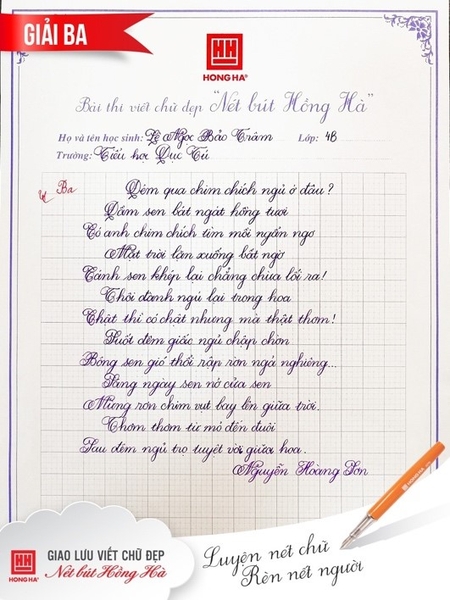 GIẢI BA
HH
HONG HA
Bài thi viết chữ đẹp "Nét bút Hồng Hà"
Họ và tên học sinh: Lê Ngọc Bảo Trâm Lớp: 4B
Trường: Tiểu học Dục Tú
Ba
Đêm qua chim chích ngủ ở đâu?
Đầm sen bát ngát hồng tươi
Có anh chim chích tìm mồi ngẩn ngơ
Mặt trời lặn xuống bất ngờ
Cánh sen khép lại chẳng chừa lối ra!
Thôi đành ngủ lại trong hoa
Chật thì có chật nhưng mà thật thơm!
Suốt đêm giấc ngủ chập chờn
Bóng sen gió thổi rập rờn ngả nghiêng...
Sáng ngày sen nở cửa sen
Mừng rơn chim vut bay lên giữa trời.
Thơm thơm từ mỏ đến đuôi
Sau đêm ngủ trọ tuyệt vời giữa hoa.
Nguyễn Hoàng Sơn
HH
HONG HA
GIAO LƯU VIẾT CHỮ ĐẸP
Nét bút Hồng Hà
Luyện nét chữ
Rèn nết người